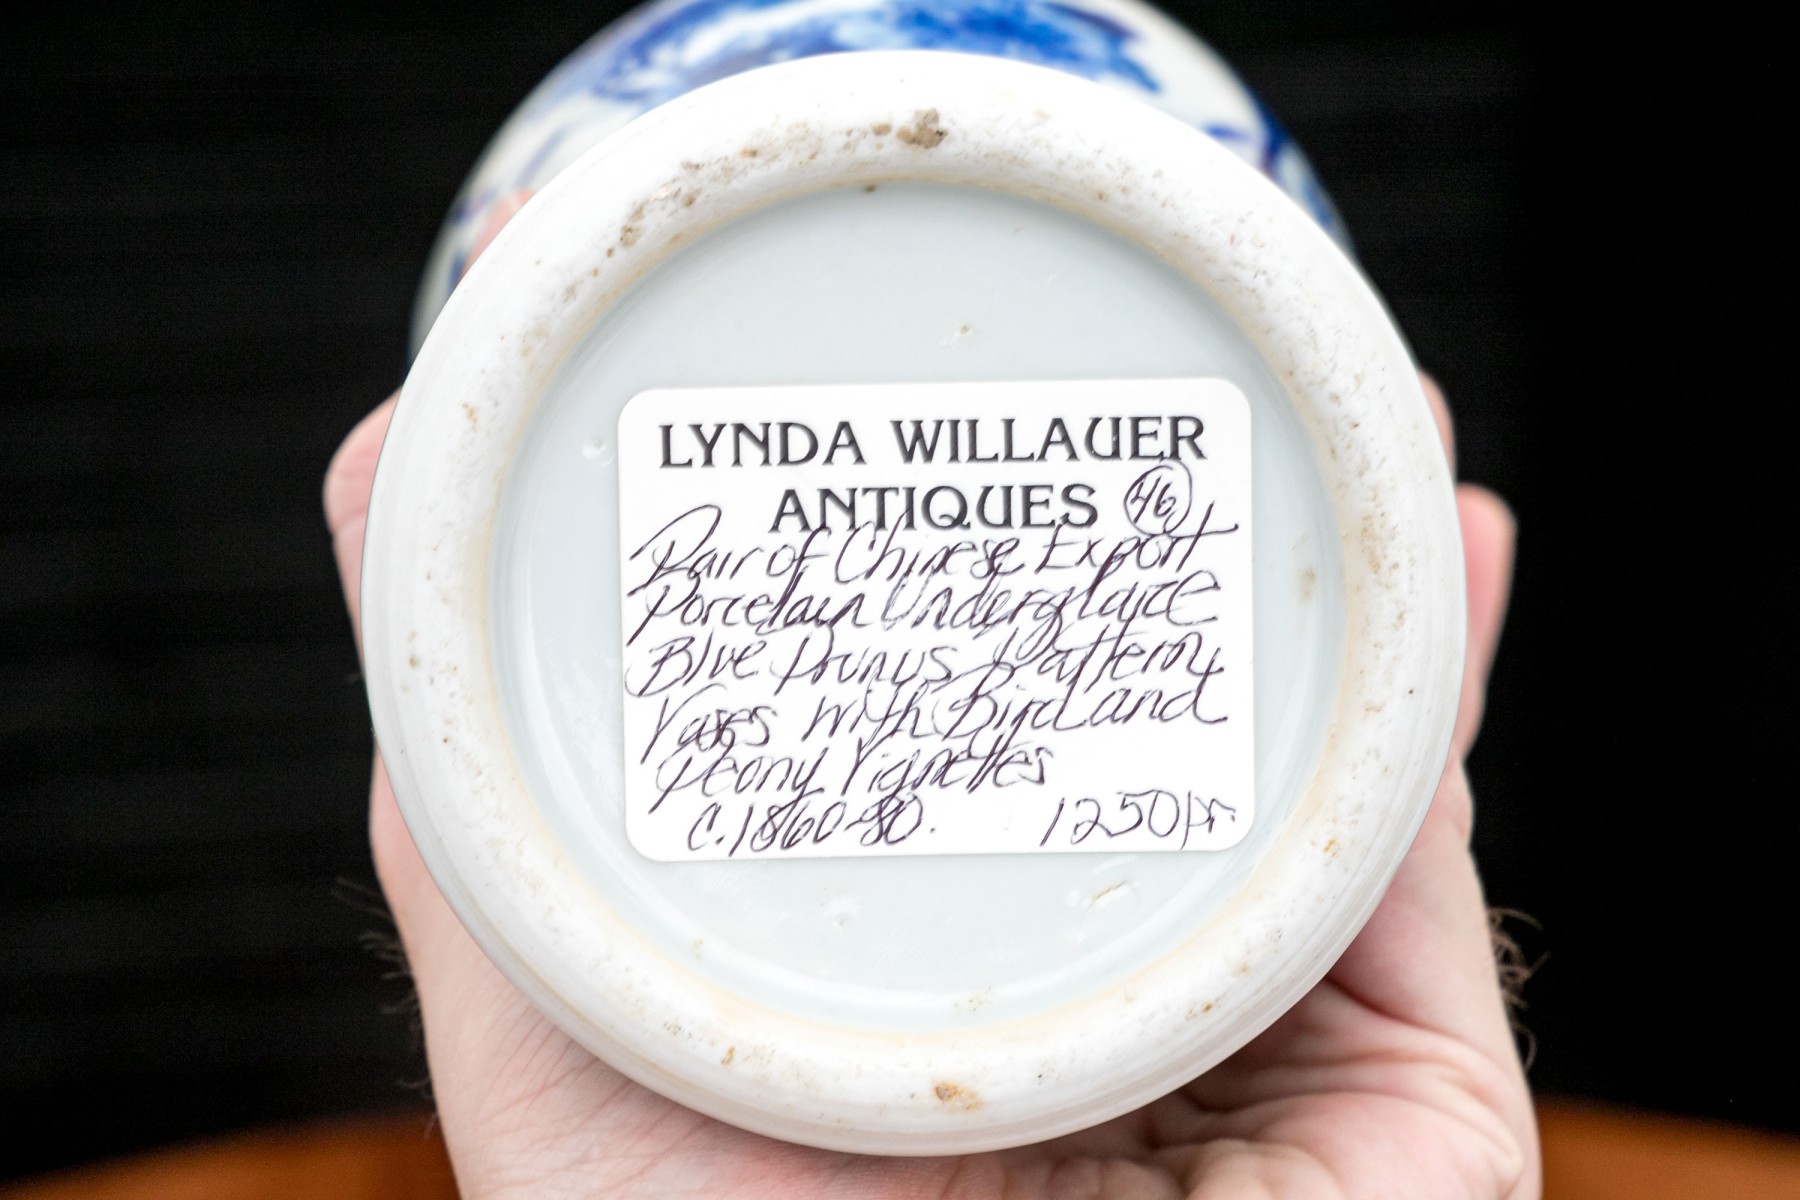 LYNDA WILLAUER
ANTIQUES 46
Pair of Chinese Export
Porcelain Underglaze
Blue Prunus Pattern
Vases with Bird and
Peony Vignettes
C. 1860-80. 1250/pr.